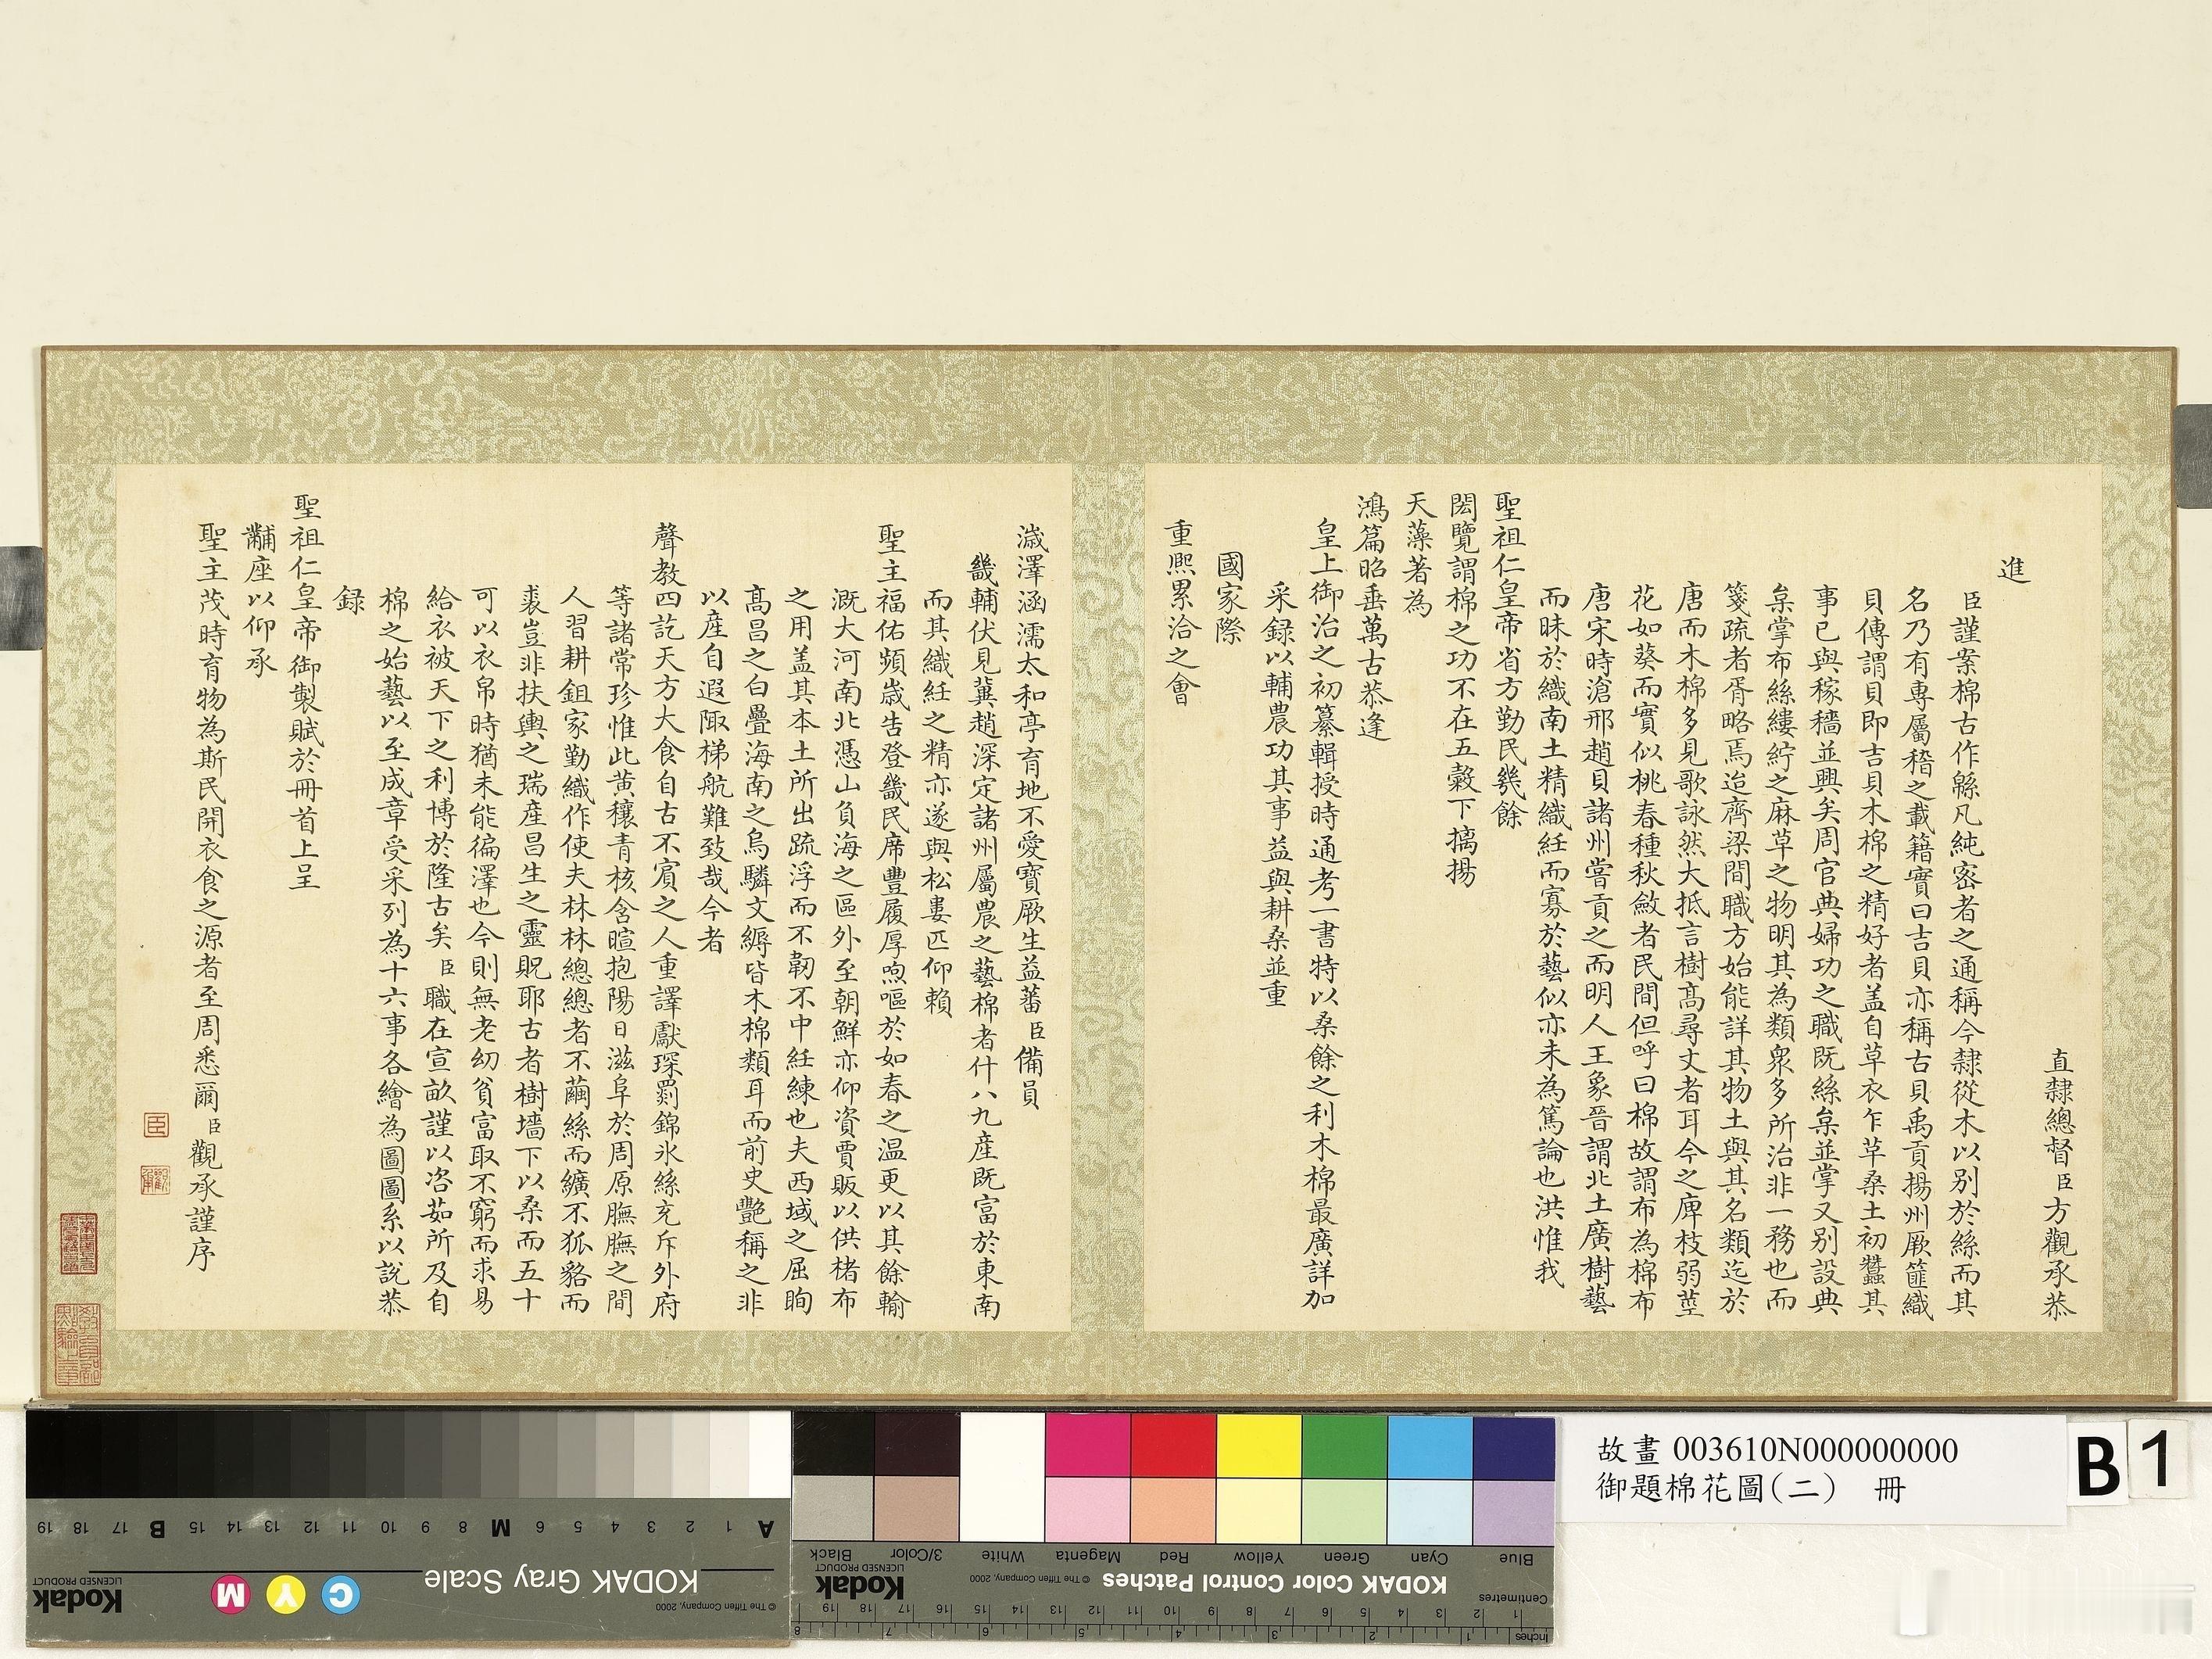 直隸總督臣方觀承恭
進
臣謹案棉古作緜凡純密者之通稱今隸從木以别於絲而其
名乃有專屬稽之載籍實曰吉貝亦稱古貝禹貢揚州厥篚織
貝傳謂貝即吉貝木棉之精好者盖自草衣乍革桑土初蠶其
事已與稼穡並興矣周官典婦功之職既絲枲並掌又别設典
枲掌布絲縷紵之麻草之物明其為類衆多所治非一務也而
箋疏者胥略焉迨齊梁間職方始能詳其物土與其名類迄於
唐而木棉多見歌詠然大抵言樹髙尋丈者耳今之庳枝弱莖
花如葵而實似桃春種秋斂者民間但呼曰棉故謂布為棉布
唐宋時滄邢趙貝諸州嘗貢之而明人王象晉謂北土廣樹藝
而昧於織南土精織紝而寡於藝似亦未為篤論也洪惟我
聖祖仁皇帝省方勤民幾餘
閎覽謂棉之功不在五穀下摛揚
天藻著為
鴻篇昭垂萬古恭逢
皇上御治之初纂輯授時通考一書特以桑餘之利木棉最廣詳加
采録以輔農功其事益與耕桑並重
國家際
重熈累洽之會
濊澤涵濡太和亭育地不愛寶厥生益蕃臣備員
畿輔伏見冀趙深定諸州屬農之藝棉者什八九産既富於東南
而其織紝之精亦遂與松婁匹仰賴
聖主福佑頻嵗告登畿民席豐履厚喣嘔於如春之温更以其餘輸
溉大河南北憑山負海之區外至朝鮮亦仰資賈販以供楮布
之用盖其本土所出疏浮而不韌不中紝練也夫西域之屈眴
髙昌之白疊海南之烏驎文縟皆木棉類耳而前史艷稱之非
以産自遐陬梯航難致哉今者
聲教四訖天方大食自古不賓之人重譯獻琛罽錦氷絲充斥外府
等諸常珍惟此黄穰青核含暄抱陽日滋阜於周原膴膴之間
人習耕鉏家勤織作使夫林林總總者不繭絲而纊不狐貉而
裘豈非扶輿之瑞産昌生之靈貺耶古者樹墻下以桑而五十
可以衣帛時猶未能徧澤也今則無老㓜貧富取不窮而求易
給衣被天下之利博於隆古矣臣職在宣畝謹以咨茹所及自
棉之始藝以至成章受采列為十六事各繪為圖圖系以說恭
録
聖祖仁皇帝御製賦於冊首上呈
黼座以仰承
聖主茂時育物為斯民開衣食之源者至周悉爾臣觀承謹序
臣
觀承
故畫 003610N000000000
御題棉花圖(二) 冊
B 1
A 1 2 3 4 5 6 M 8 9 10 11 12 13 14 15 B 17 18 19
KODAK Gray Scale
© The Tiffen Company, 2000
C Y M
Kodak
LICENSED PRODUCT
Blue Cyan Green Yellow Red Magenta White 3/Color Black
KODAK Color Control Patches
© The Tiffen Company, 2000
Kodak
LICENSED PRODUCT
Centimetres
1 2 3 4 5 6 7 8 9 10 11 12 13 14 15 16 17 18 19
Inches
1 2 3 4 5 6 7 8